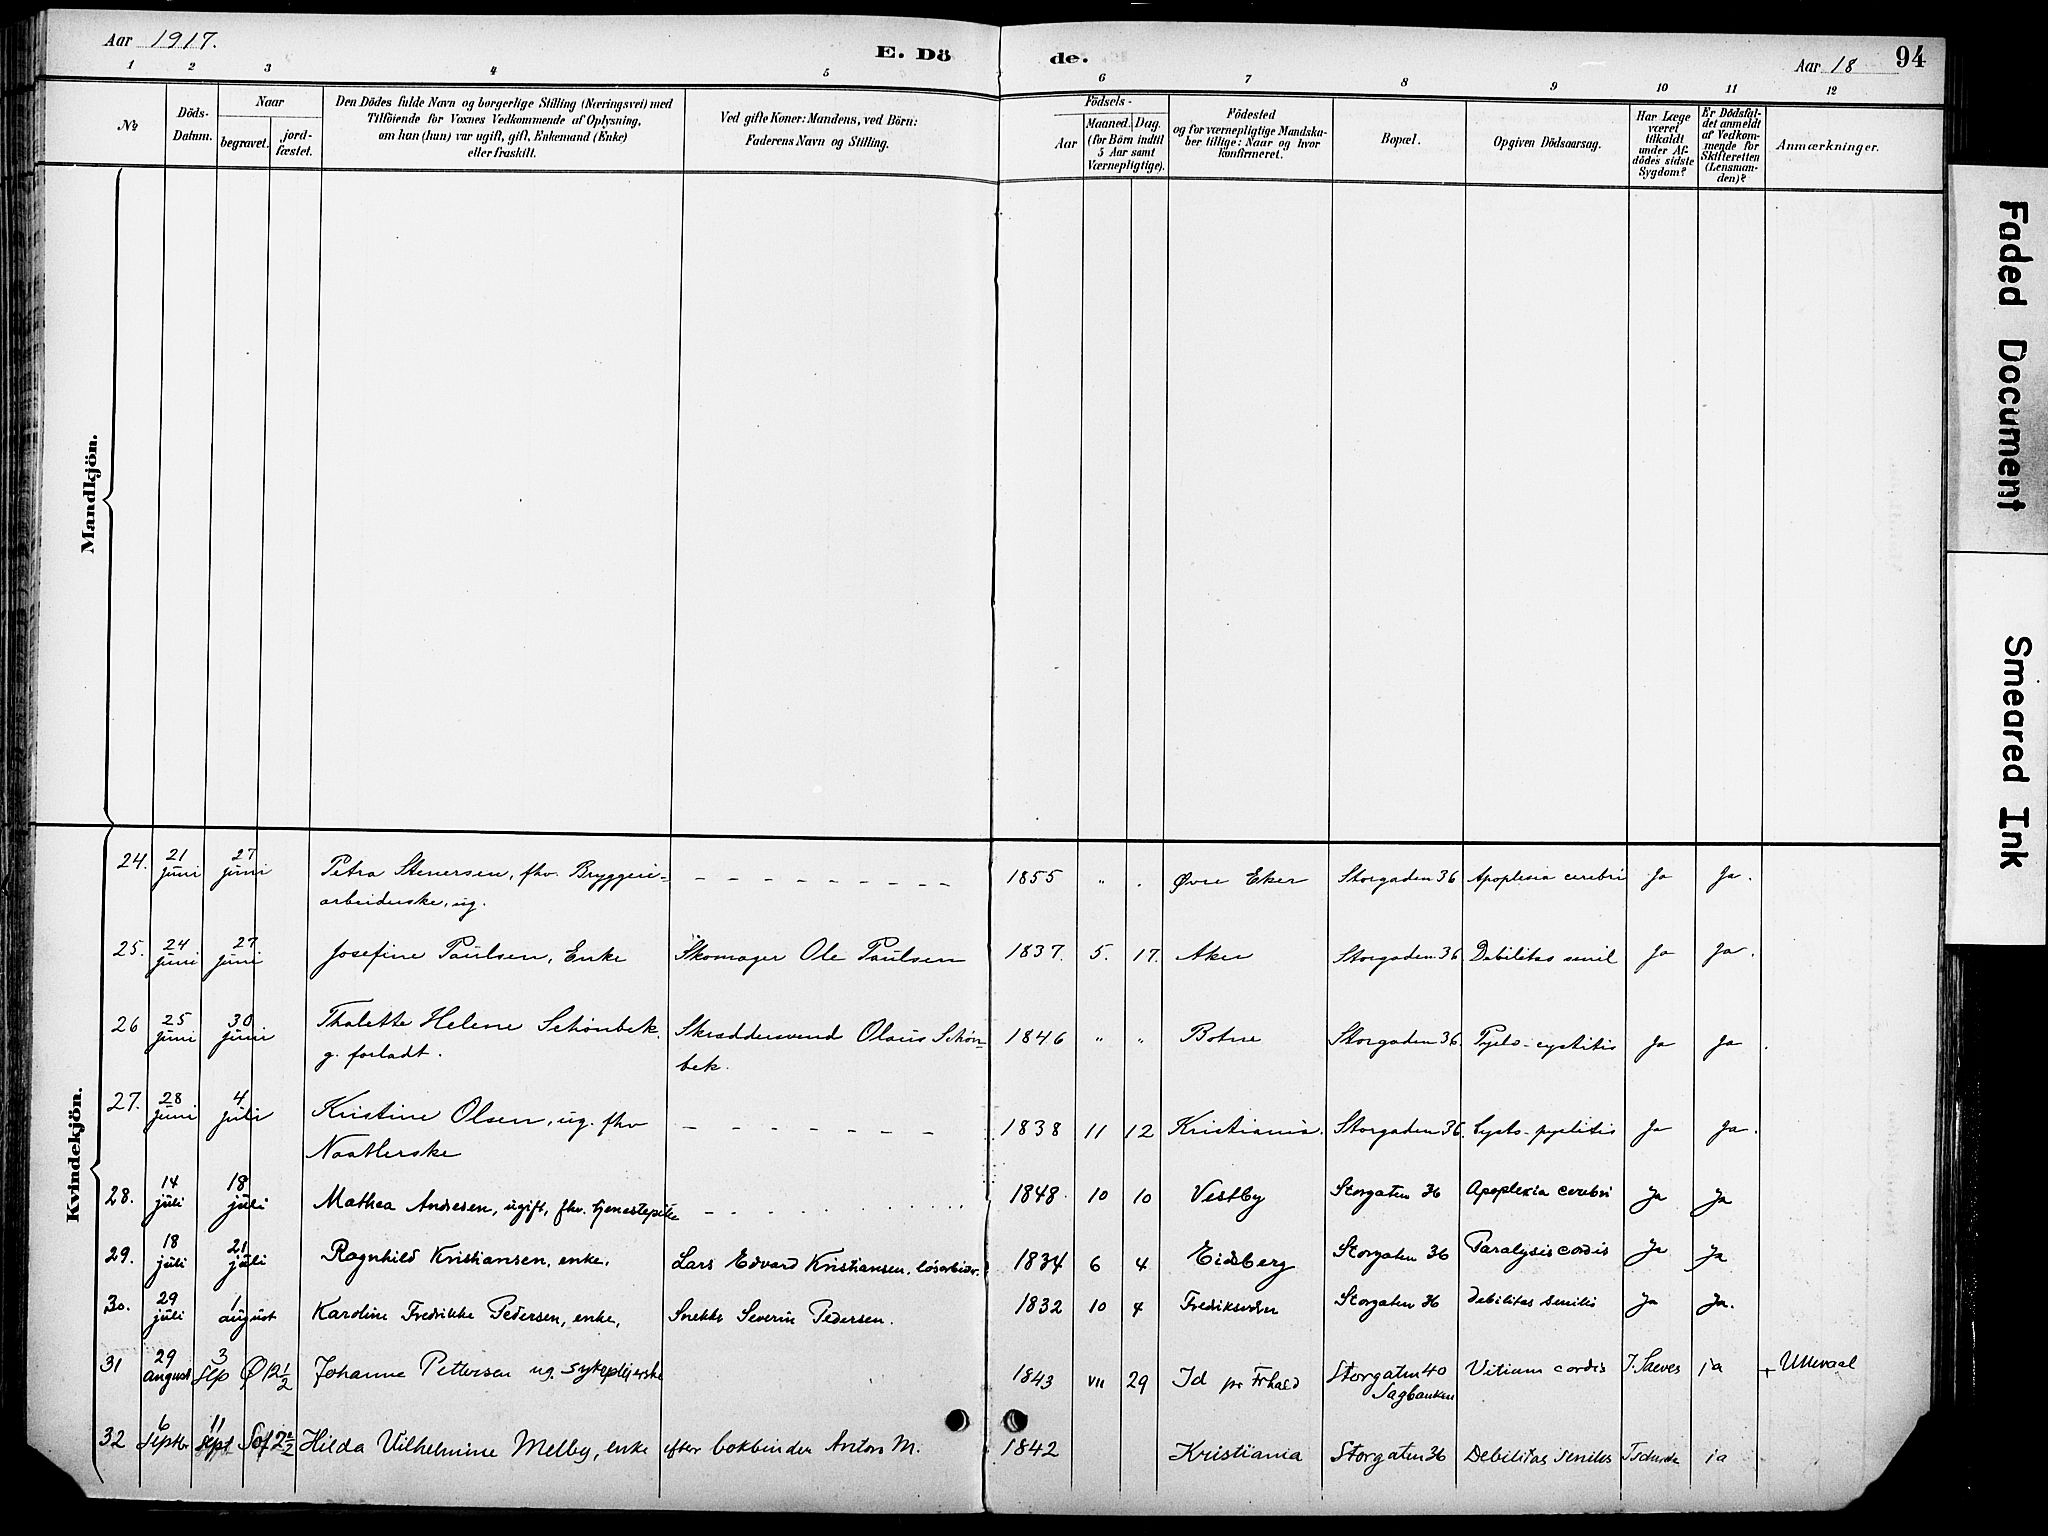 Aar 1917.
E. Dö
de.
Aar 18
94
1 2 3 4 5 6 7 8 9 10 11 12
No
Döds-
Datum.
Naar
begravet.
jord-
fæstet.
Den Dödes fulde Navn og borgerlige Stilling (Næringsvei) med
Tilföiende for Voxnes Vedkommende af Oplysning,
om han (hun) var ugift, gift, Enkemand (Enke)
eller fraskilt.
Ved gifte Koner: Mandens, ved Börn:
Faderens Navn og Stilling.
Födsels-
Aar
Maaned. Dag.
(for Börn indtil
5 Aar samt
Værnepligtige).
Födested
og for værnepligtige Mandska-
ber tillige: Naar og hvor
konfirmeret.
Bopæl.
Opgiven Dödsaarsag.
Har Læge
været
tilkaldt
under Af-
dödes sidste
Sygdom?
Er Dödsfal-
det anmeldt
af Vedkom-
mende for
Skifteretten
(Lensman-
den)?
Anmærkninger.
Mandkjön.
Kvindekjön.
24. 21 juni 27 juni Petra Stenersen, fhv. Bryggeri= – – – – – – – – – 1855 " . Øvre Eker Storgaden 36 Apoplexia cerebri Ja Ja.
arbeiderske, ug.
25. 24 juni 27 juni Josefine Paulsen, Enke Skomager Ole Paulsen 1837. 5. 17. Aker Storgaden 36 Debilitas senil Ja Ja.
26 25 juni 30 juni Thalette Helene Schønbek. Skræddersvend Olaus Schøn- 1846 " " Botne Storgaden 36. Pyelo-cystitis Ja Ja.
g. forladt. bek.
27. 28 juni 4 juli Kristine Olsen, ug. fhv – – – – – – – 1838 11 12 Kristiania. Storgaden 36. Cysto-pyelitis Ja Ja.
Naatlerske
28. 14 juli 18 juli Mathea Andresen, ugift, fhv. tjenestepike 1848. 10 10 Vestby Storgaten 36 Apoplexia cerebri Ja Ja
29. 18 juli 21 juli Ragnhild Kristiansen, enke, Lars Edvard Kristiansen, løsarbeider. 1834 6 4 Eidsberg Storgaten 36 Paralysis cordis Ja Ja
30. 29 juli 1 august Karoline Fredrikke Pedersen, enke, Snekker Severin Pedersen. 1832 10 4 Storgaten 36 Debilitas senilis Ja Ja.
31 29 august 3 Sep Ø 12 1/2 Johanne Pettersen ug. sykepleierske 1843 VII 29 Id pr Frhald Storgaten 40 Vitium cordis ja + Ullevaal
Sagbanken
32 6 Septbr 11 Sept Hilda Vilhelmine Melby, enke efter bokbinder Anton M. 1842 Kristiania Storgaten 36 Debilitas senilis ja
Faded Document
Smeared Ink